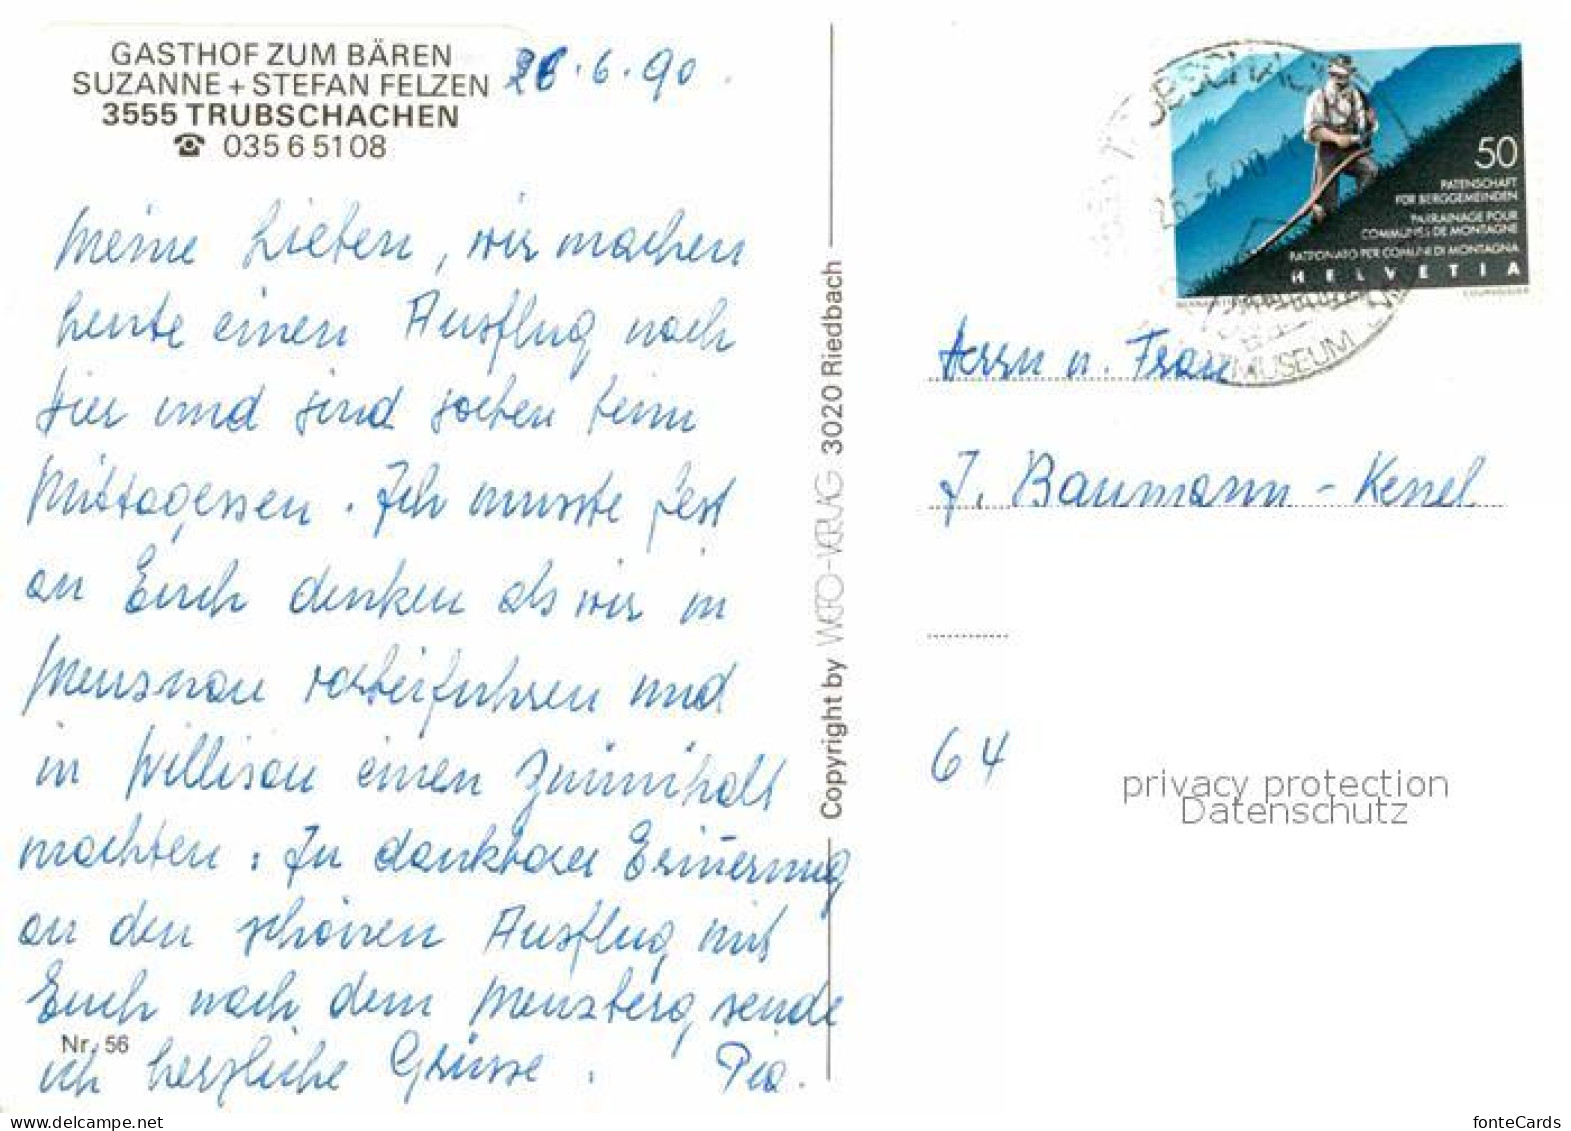 GASTHOF ZUM BÄREN
SUZANNE + STEFAN FELZEN
3555 TRUBSCHACHEN
☎ 035 6 51 08
26.6.90.
Meine Lieben, wir machen
heute einen Ausflug nach
hier und sind soeben beim
Mittagessen. Ich musste fest
an Euch denken als wir in
Menznau vorbeifuhren und
in Willisau einen Znünihalt
machten. In dankbarer Erinnerung
an den schönen Ausflug mit
Euch nach dem Menzberg, sende
ich herzliche Grüsse. Pia.
Nr. 56
Copyright by WEFO-VERLAG 3020 Riedbach
50
PATENSCHAFT
FÜR BERGGEMEINDEN
PARRAINAGE POUR
COMMUNES DE MONTAGNE
PATRONATO PER COMUNI DI MONTAGNA
HELVETIA
MUSEUM
Herrn u. Frau
J. Baumann-Kenel
64
privacy protection
Datenschutz
fonteCards